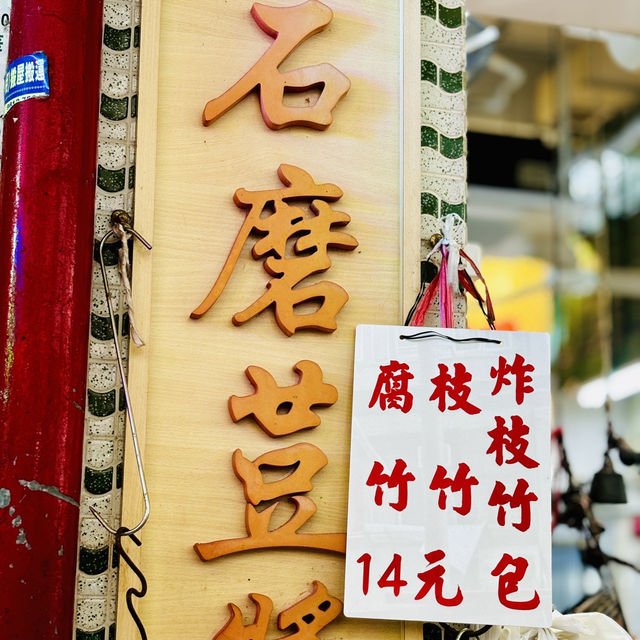 屋搬運
石磨荳
炸枝竹包
枝竹
腐竹
14元